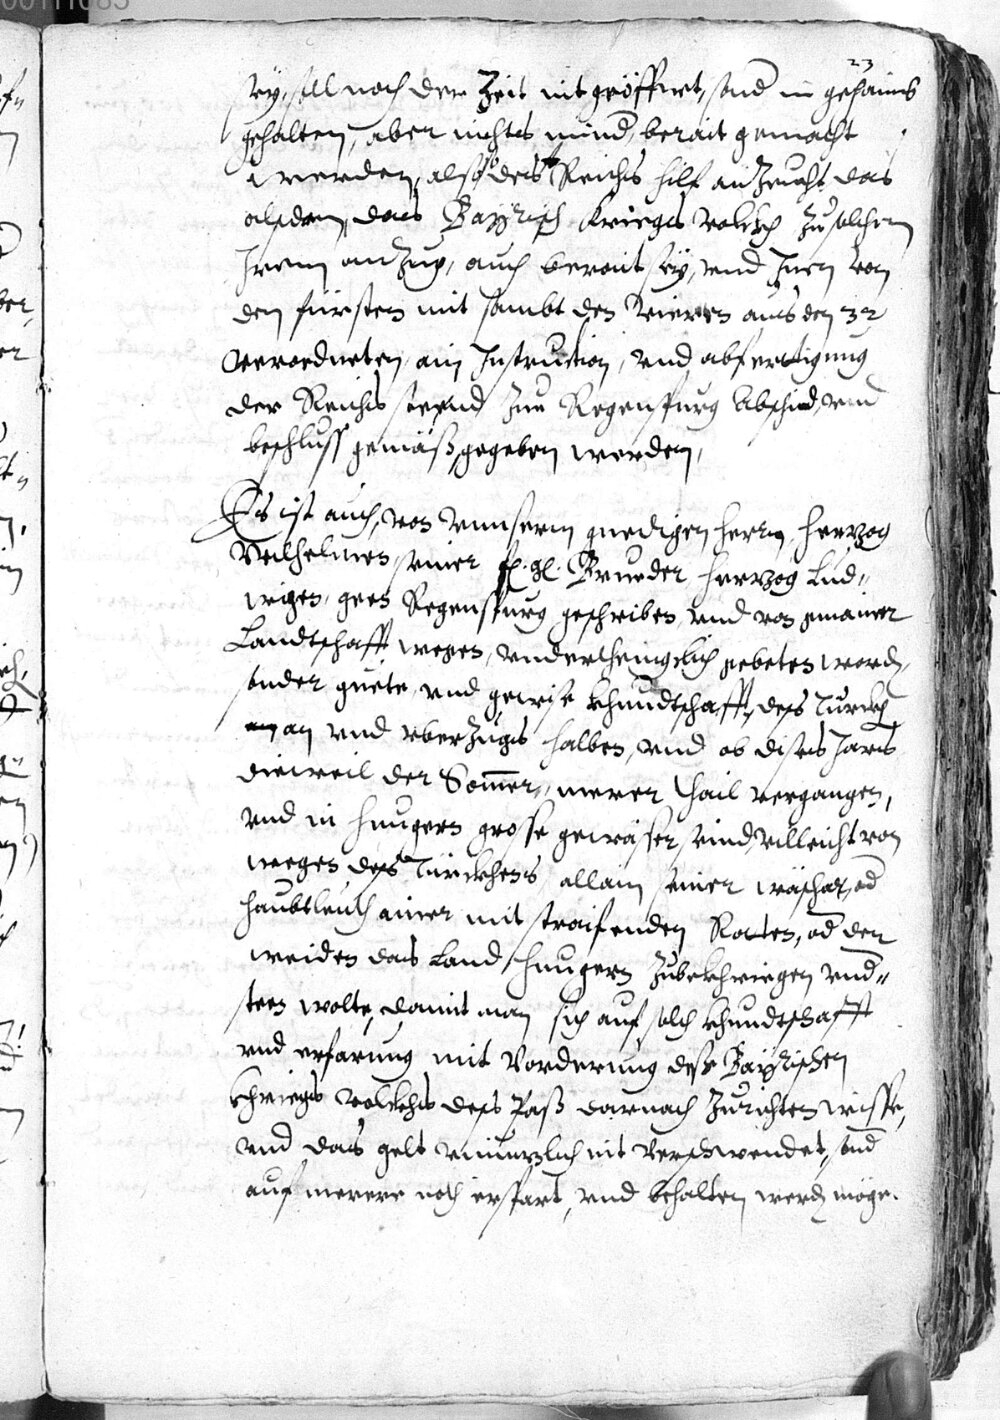 23
sey, soll noch der Zeit nit geöffnet, sond in gehaimb
gehalten, aber nichts mind berait gemacht
werden, also so des Reichs hilf anzeucht das
alsdenn, das Bayrisch kriegs volckh zu solchem
Irem anzug, auch berait sey, vnd Inen von
den fürsten mit sambt den vieren aus den 32
verordneten ain Instruction, vnd abfertigung
der Reichs steend zue Regenspurg Abschied, vnd
beschluss gemäß, gegeben werden,
Es ist auch, von vnnserm gnedigen herrn hertzog
Wilhelmen, seiner f. gl. Brueder hertzog Lud„
wigen, geen Regenspurg geschriben vnd von gmainer
Landtschafft wegen, vnderthenigklich gebeten word,
sonder guete vnd gewise khundtschafft, des Turckh
an vnd vberzugs halben, vnd ob dises Jars
dieweil der Sommer, merer thail vergangen,
vnd in Hungern grosse gewässer sind, villeicht von
wegen des Türckhens allain seiner waschat, od
haubtleuth ainer mit straifenden Roten, od den
weiden das Land Hungern zubekhriegen vnd„
steen wolte, damit man sich auf solch khundtschafft
vnd erfarung mit Vorderung des Bayrischen
khriegs volckhs des paß darnach zurichten wisse,
vnd das gelt vnnutzlich nit verschwendet, sond
auf merere noth erspart, vnd behalten werd möge.